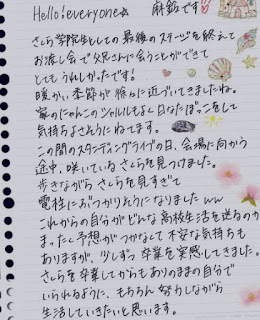 Hello!everyone☆ 麻鈴です!
さくら学院生としての最後のステージを終えて
お渡し会で父兄さんに会うことができて
とてもうれしかったです!
暖かい季節が徐々に近づいてきましたね。
家のにゃんこのシャルルもよく日なたぼっこをして
気持ちよさそうにねてます。
この間のスタンディングライブの日、会場に向かう
途中、咲いているさくらを見つけました。
歩きながらさくらを見すぎて
電柱におでこぶつかりそうになりましたww
これからの自分がどんな高校生活を送るのか
まったく予想がつかなくて不安な気持ちも
ありますが、少しずつ卒業を実感してきました。
さくらを卒業してからもありのままの自分で
いられるように、もちろん努力しながら
生活していきたいと思います。